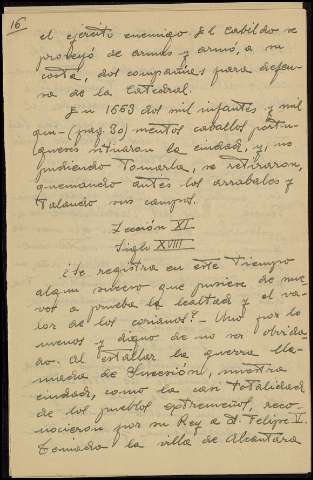 16
el ejercito enemigo. El Cabildo se
proveyó de armas y armó, a su
costa, dos compañías para defen-
sa de la Catedral.
En 1663 dos mil infantes y mil
qui-(pag. 30) nientos caballos portu-
gueses sitiaron la ciudad, y, no
pudiendo tomarla, se retiraron,
quemando antes los arrabales y
talando sus campos.
Lección XI
Siglo XVIII
¿Se registra en este tiempo
algún suceso que pusiese de nue-
vo a prueba la lealtad y el va-
lor de los corianos? - Uno por lo
menos y digno de no ser olvida-
do. Al estallar la guerra lla-
mada de Sucesión, nuestra
ciudad, como la casi totalidad
de los pueblos extremeños, reco-
nocieron por su Rey a D. Felipe V.
Tomada la villa de Alcántara